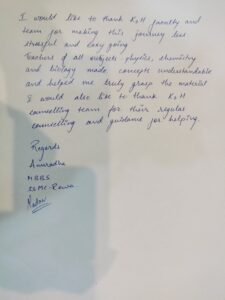 I would like to thank KSH faculty and
team for making this journey less
stressful and easy going
Teachers of all subjects physics, chemistry
and biology made concepts understandable
and helped me truly grasp the material
I would also like to thank KSH
counselling team for their regular
counselling and guidance for helping.
Regards
Anuradha
MBBS
SSMC-Rewa